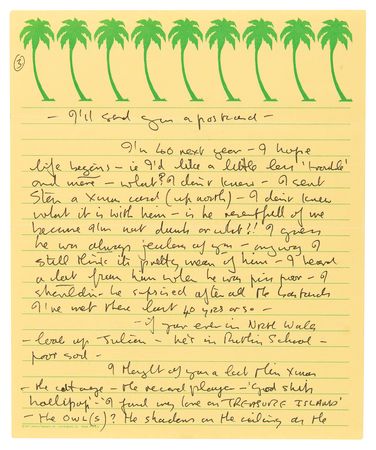 ③
- I'll send you a postcard -
I'm 40 next year - I hope
life begins - ie I'd like a little less 'trouble'
and more - what? I don't know - I sent
Stan a Xmas card (up north) - I don't know
what it is with him - is he resentfull of me
because I'm not dumb or what?! I guess
he was always jealous of you - anyway I
still think its pretty mean of him - I heard
a lot from him when he was piss poor - I
shouldn't be suprised after all the bastards
I've met these last 40 years or so -
- if your ever in North Wales
- look up Julian - he's in Ruthin School -
poor sod -
I thought of you a lot this Xmas
- the cottage - the record player - 'Good ship
lollipop' - 'I found my love on TREASURE ISLAND'
- the owl(s)? the shadows on the ceiling as the